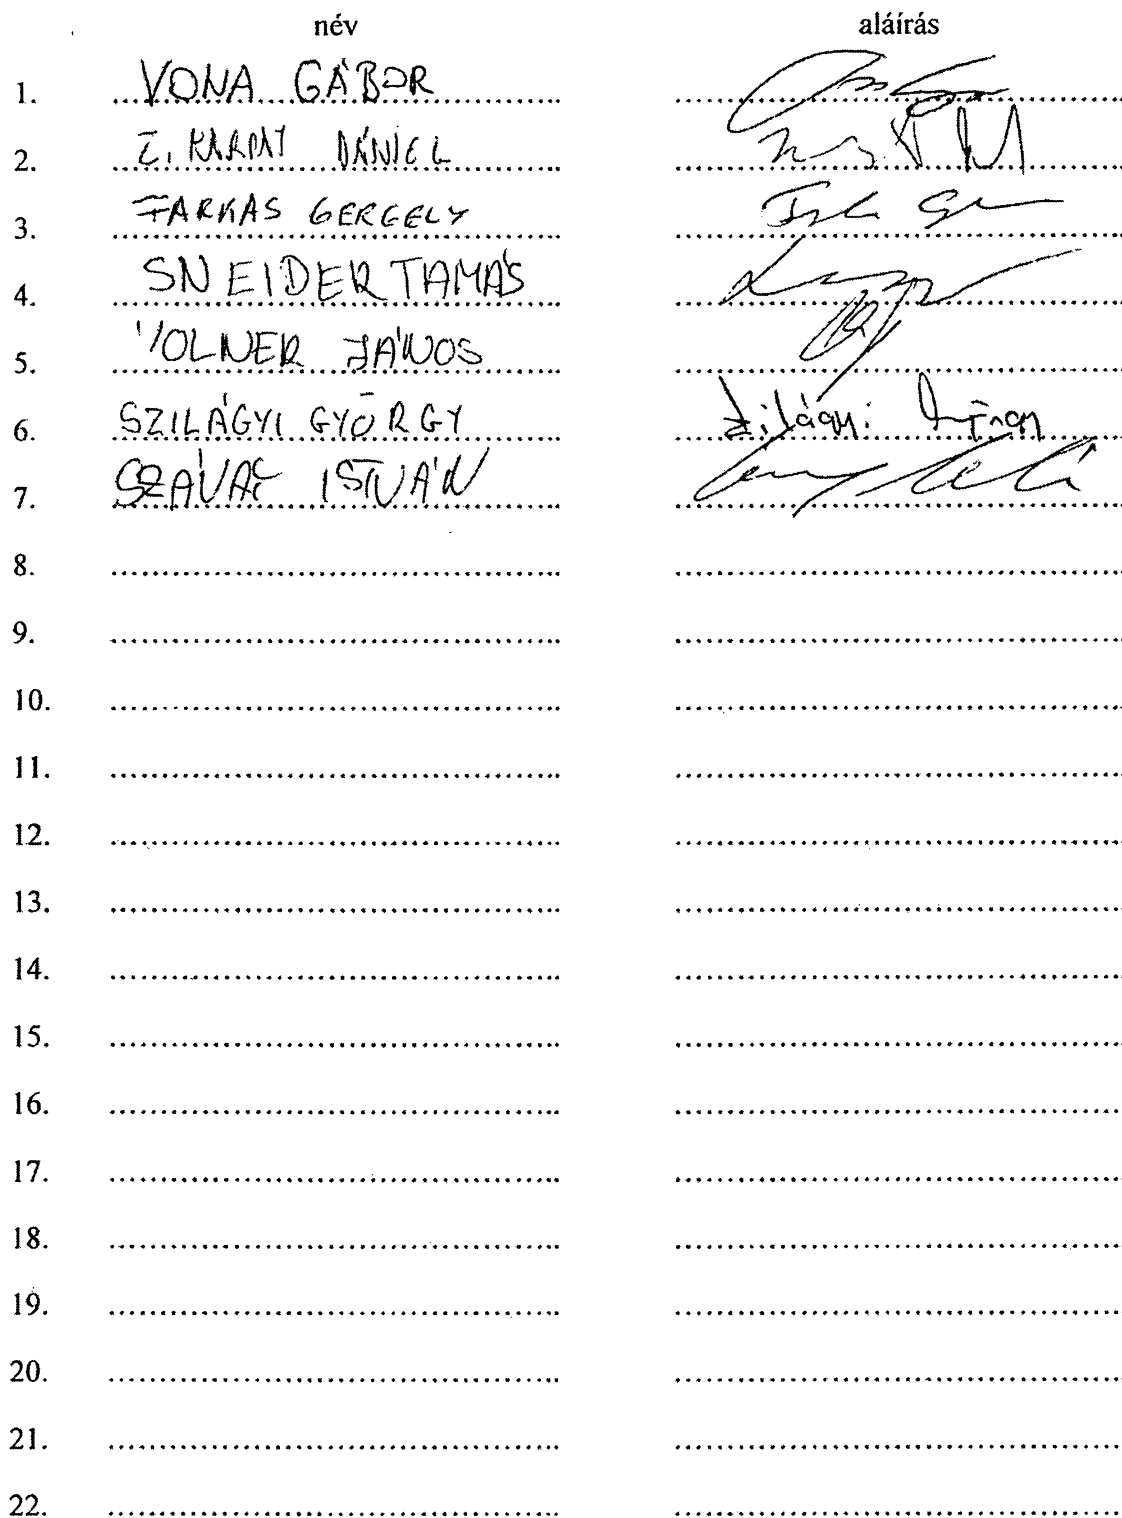 név aláírás
1. VONA GÁBOR
2. Z. KÁRPÁT DÁNIEL
3. FARKAS GERGELY
4. SNEIDER TAMÁS
5. VOLNER JÁNOS
6. SZILÁGYI GYÖRGY Szilágyi György
7. SZÁVAY ISTVÁN
8.
9.
10.
11.
12.
13.
14.
15.
16.
17.
18.
19.
20.
21.
22.